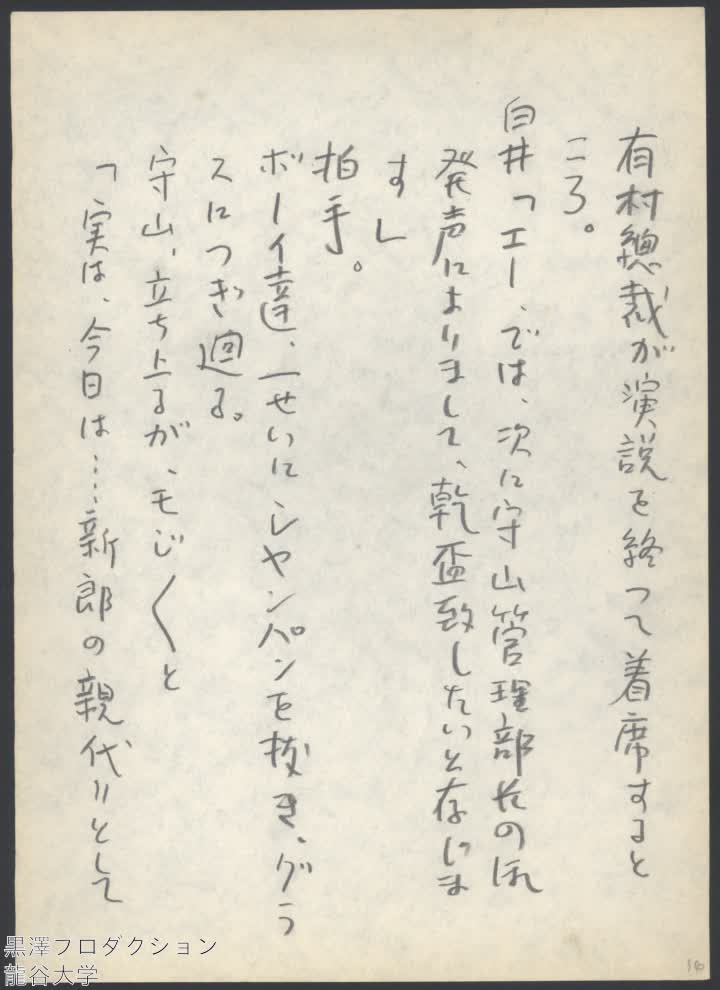 有村總裁が演説を終って着席すると
ころ。
白井「エー、では、次に守山管理部長の御
発声によりまして、乾盃致したいと存じま
す」
拍手。
ボーイ達、一せいにシャンパンを抜き、グラ
スにつぎ廻る。
守山、立ち上るが、モジ〱と
「実は、今日は……新郎の親代りとして
16
黒澤プロダクション
龍谷大学